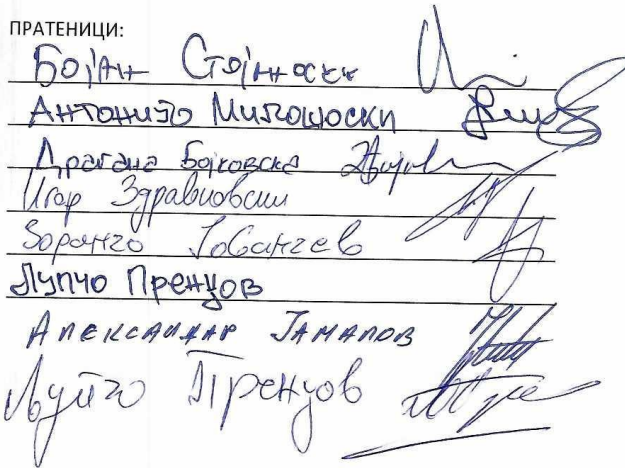 ПРАТЕНИЦИ:
Бојан Стојаноски
Антонијо Милошоски
Драгана Бојковска
Игор Здравковски
Зоранчо Јованчев
Лупчо Пренџов
Александар
Лупчо Пренџов